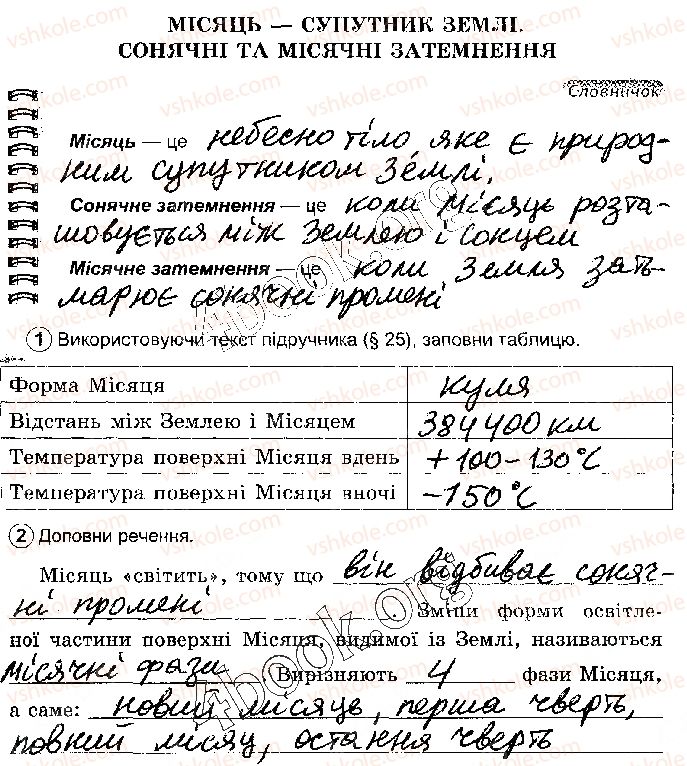 МІСЯЦЬ — СУПУТНИК ЗЕМЛІ.
СОНЯЧНІ ТА МІСЯЧНІ ЗАТЕМНЕННЯ
Словничок
Місяць — це небесно тіло яке є природ-
ним супутником Землі.
Сонячне затемнення — це коли Місяць розта-
шовується між Землею і Сонцем
Місячне затемнення — це коли Земля зать-
марює сонячні промені
1 Використовуючи текст підручника (§ 25), заповни таблицю.
Форма Місяця куля
Відстань між Землею і Місяцем 384400 км
Температура поверхні Місяця вдень +100-130°C
Температура поверхні Місяця вночі -150°C
2 Доповни речення.
Місяць «світить», тому що він відбиває соняч-
ні промені. Зміни форми освітле-
ної частини поверхні Місяця, видимої із Землі, називаються
місячні фази. Вирізняють 4 фази Місяця,
а саме: новий місяць, перша чверть,
повний місяц, остання чверть
vshkole.com
4book.org